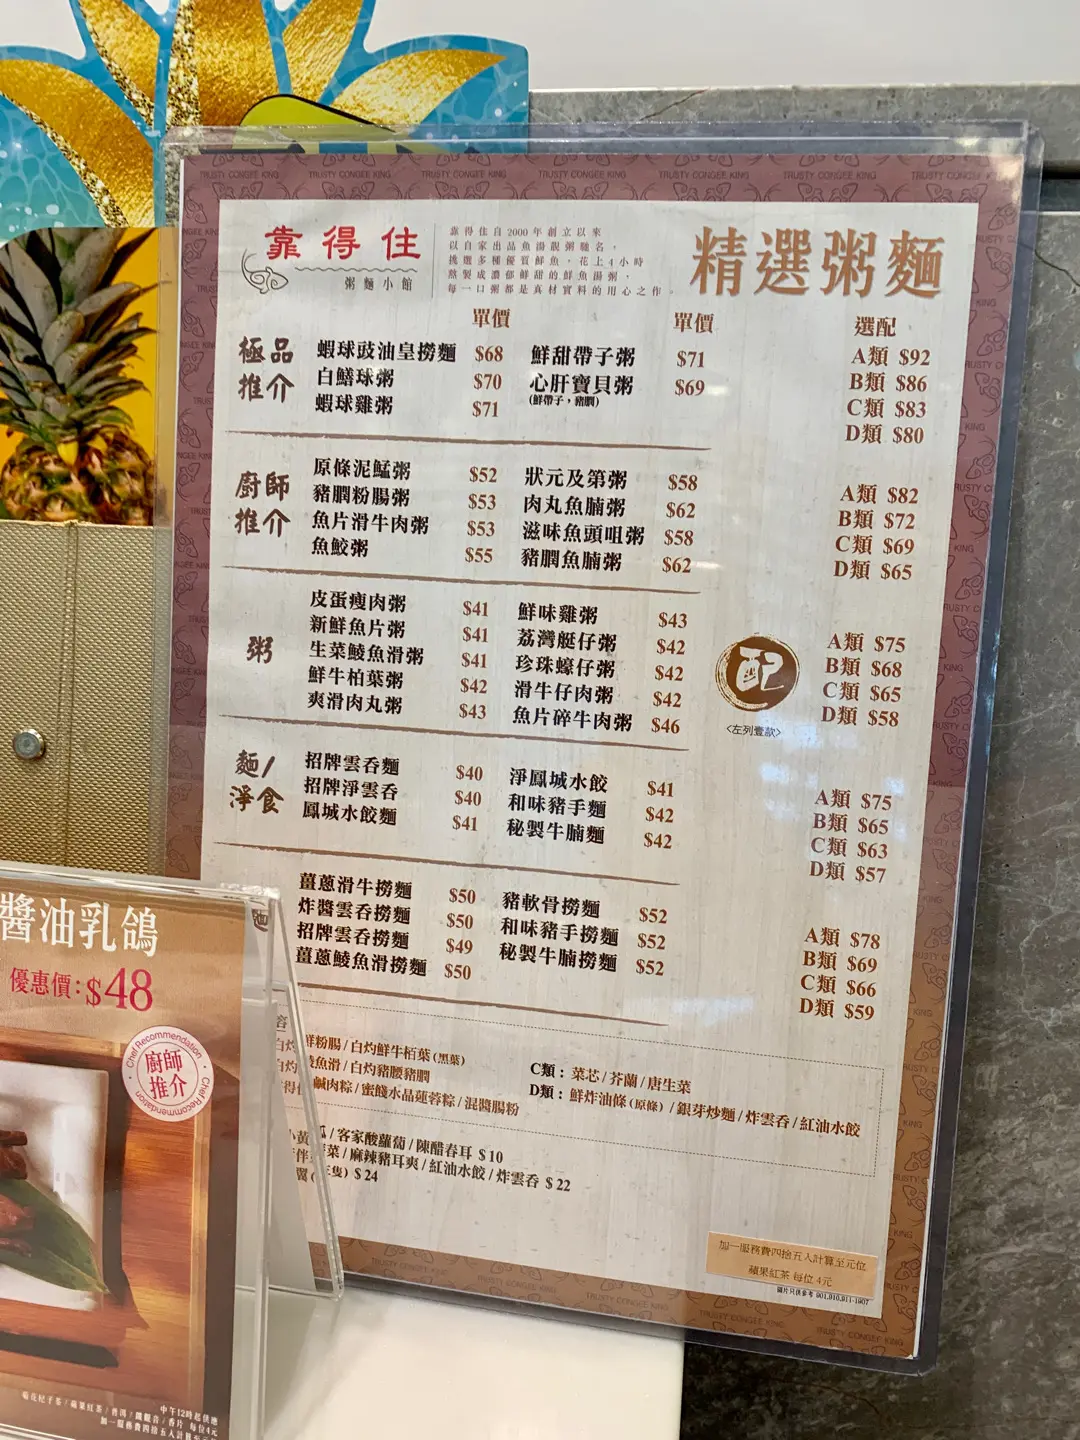 靠得住
粥麵小館
靠得住自2000年創立以來
以自家出品魚湯靚粥馳名，
挑選多種優質鮮魚，花上4小時
熬製成濃郁鮮甜的鮮魚湯粥，
每一口粥都是真材實料的用心之作。
精選粥麵
單價 單價 選配
極品推介
蝦球豉油皇撈麵 $68 鮮甜帶子粥 $71 A類 $92
白鱔球粥 $70 心肝寶貝粥 $69 B類 $86
(鮮帶子，豬膶)
蝦球雞粥 $71 C類 $83
D類 $80
廚師推介
原條泥鯭粥 $52 狀元及第粥 $58 A類 $82
豬膶粉腸粥 $53 肉丸魚腩粥 $62 B類 $72
魚片滑牛肉粥 $53 滋味魚頭咀粥 $58 C類 $69
魚鮫粥 $55 豬膶魚腩粥 $62 D類 $65
粥
皮蛋瘦肉粥 $41 鮮味雞粥 $43 A類 $75
新鮮魚片粥 $41 荔灣艇仔粥 $42 B類 $68
生菜鯪魚滑粥 $41 珍珠蠔仔粥 $42 C類 $65
鮮牛柏葉粥 $42 滑牛仔肉粥 $42 D類 $58
爽滑肉丸粥 $43 魚片碎牛肉粥 $46
配
<左列壹款>
麵/淨食
招牌雲吞麵 $40 淨鳳城水餃 $41 A類 $75
招牌淨雲吞 $40 和味豬手麵 $42 B類 $65
鳳城水餃麵 $41 秘製牛腩麵 $42 C類 $63
D類 $57
薑蔥滑牛撈麵 $50 豬軟骨撈麵 $52 A類 $78
炸醬雲吞撈麵 $50 和味豬手撈麵 $52 B類 $69
招牌雲吞撈麵 $49 秘製牛腩撈麵 $52 C類 $66
薑蔥鯪魚滑撈麵 $50 D類 $59
鮮粉腸/白灼鮮牛栢葉(黑葉)
魚滑/白灼豬腰豬膶
鹹肉粽/蜜餞水晶蓮蓉粽/混醬腸粉
C類：菜芯/芥蘭/唐生菜
D類：鮮炸油條(原條)/銀芽炒麵/炸雲吞/紅油水餃
瓜/客家酸蘿蔔/陳醋春耳 $10
菜/麻辣豬耳爽/紅油水餃/炸雲吞 $22
翼(三隻) $24
加一服務費四捨五入計算至元位
蘋果紅茶 每位4元
圖片只供參考 901,910,911-1907
TRUSTY CONGEE KING
醬油乳鴿
優惠價:$48
Chef Recommendation
廚師推介
Chef Recommendation
中午12時起供應
菊花杞子茶/蘋果紅茶/普洱/鐵觀音/香片 每位4元
加一服務費四捨五入計算至元